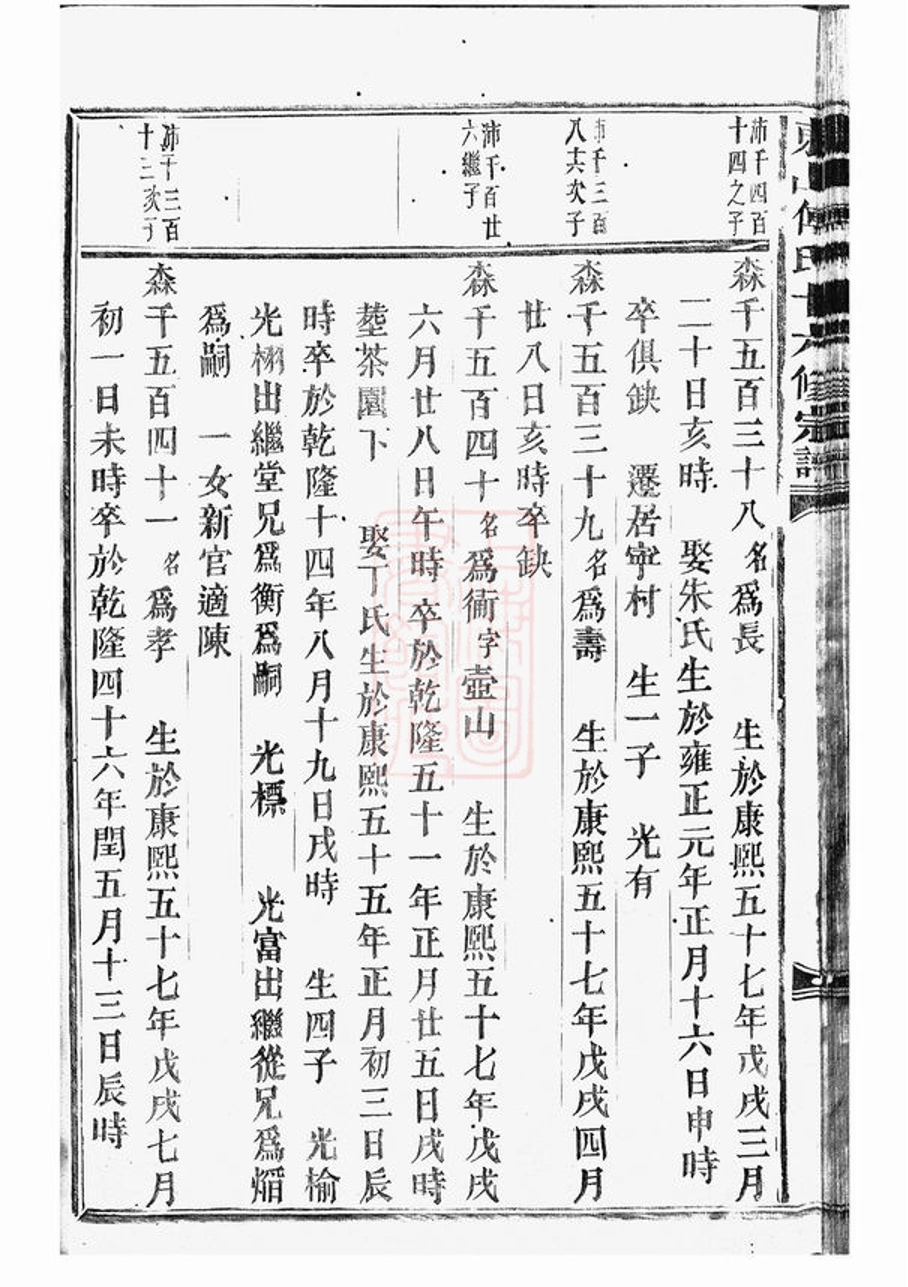 沛千四百
十四之子
森千五百三十八名爲長 生於康熙五十七年戊戌三月
二十日亥時 娶朱氏生於雍正元年正月十六日申時
卒俱缺 遷居寧村 生一子 光有
沛千三百
八共次子
森千五百三十九名爲壽 生於康熙五十七年戊戌四月
廿八日亥時卒缺
沛千百廿
六繼子
森千五百四十名爲衕字壺山 生於康熙五十七年戊戌
六月廿八日午時卒於乾隆五十一年正月廿五日戌時
塟茶園下 娶丁氏生於康熙五十五年正月初三日辰
時卒於乾隆十四年八月十九日戌時 生四子 光榆
光栩出繼堂兄爲衡爲嗣 光標 光富出繼從兄爲熖
爲嗣 一女新官適陳
沛千三百
十三次子
森千五百四十一名爲孝 生於康熙五十七年戊戌七月
初一日未時卒於乾隆四十六年閏五月十三日辰時